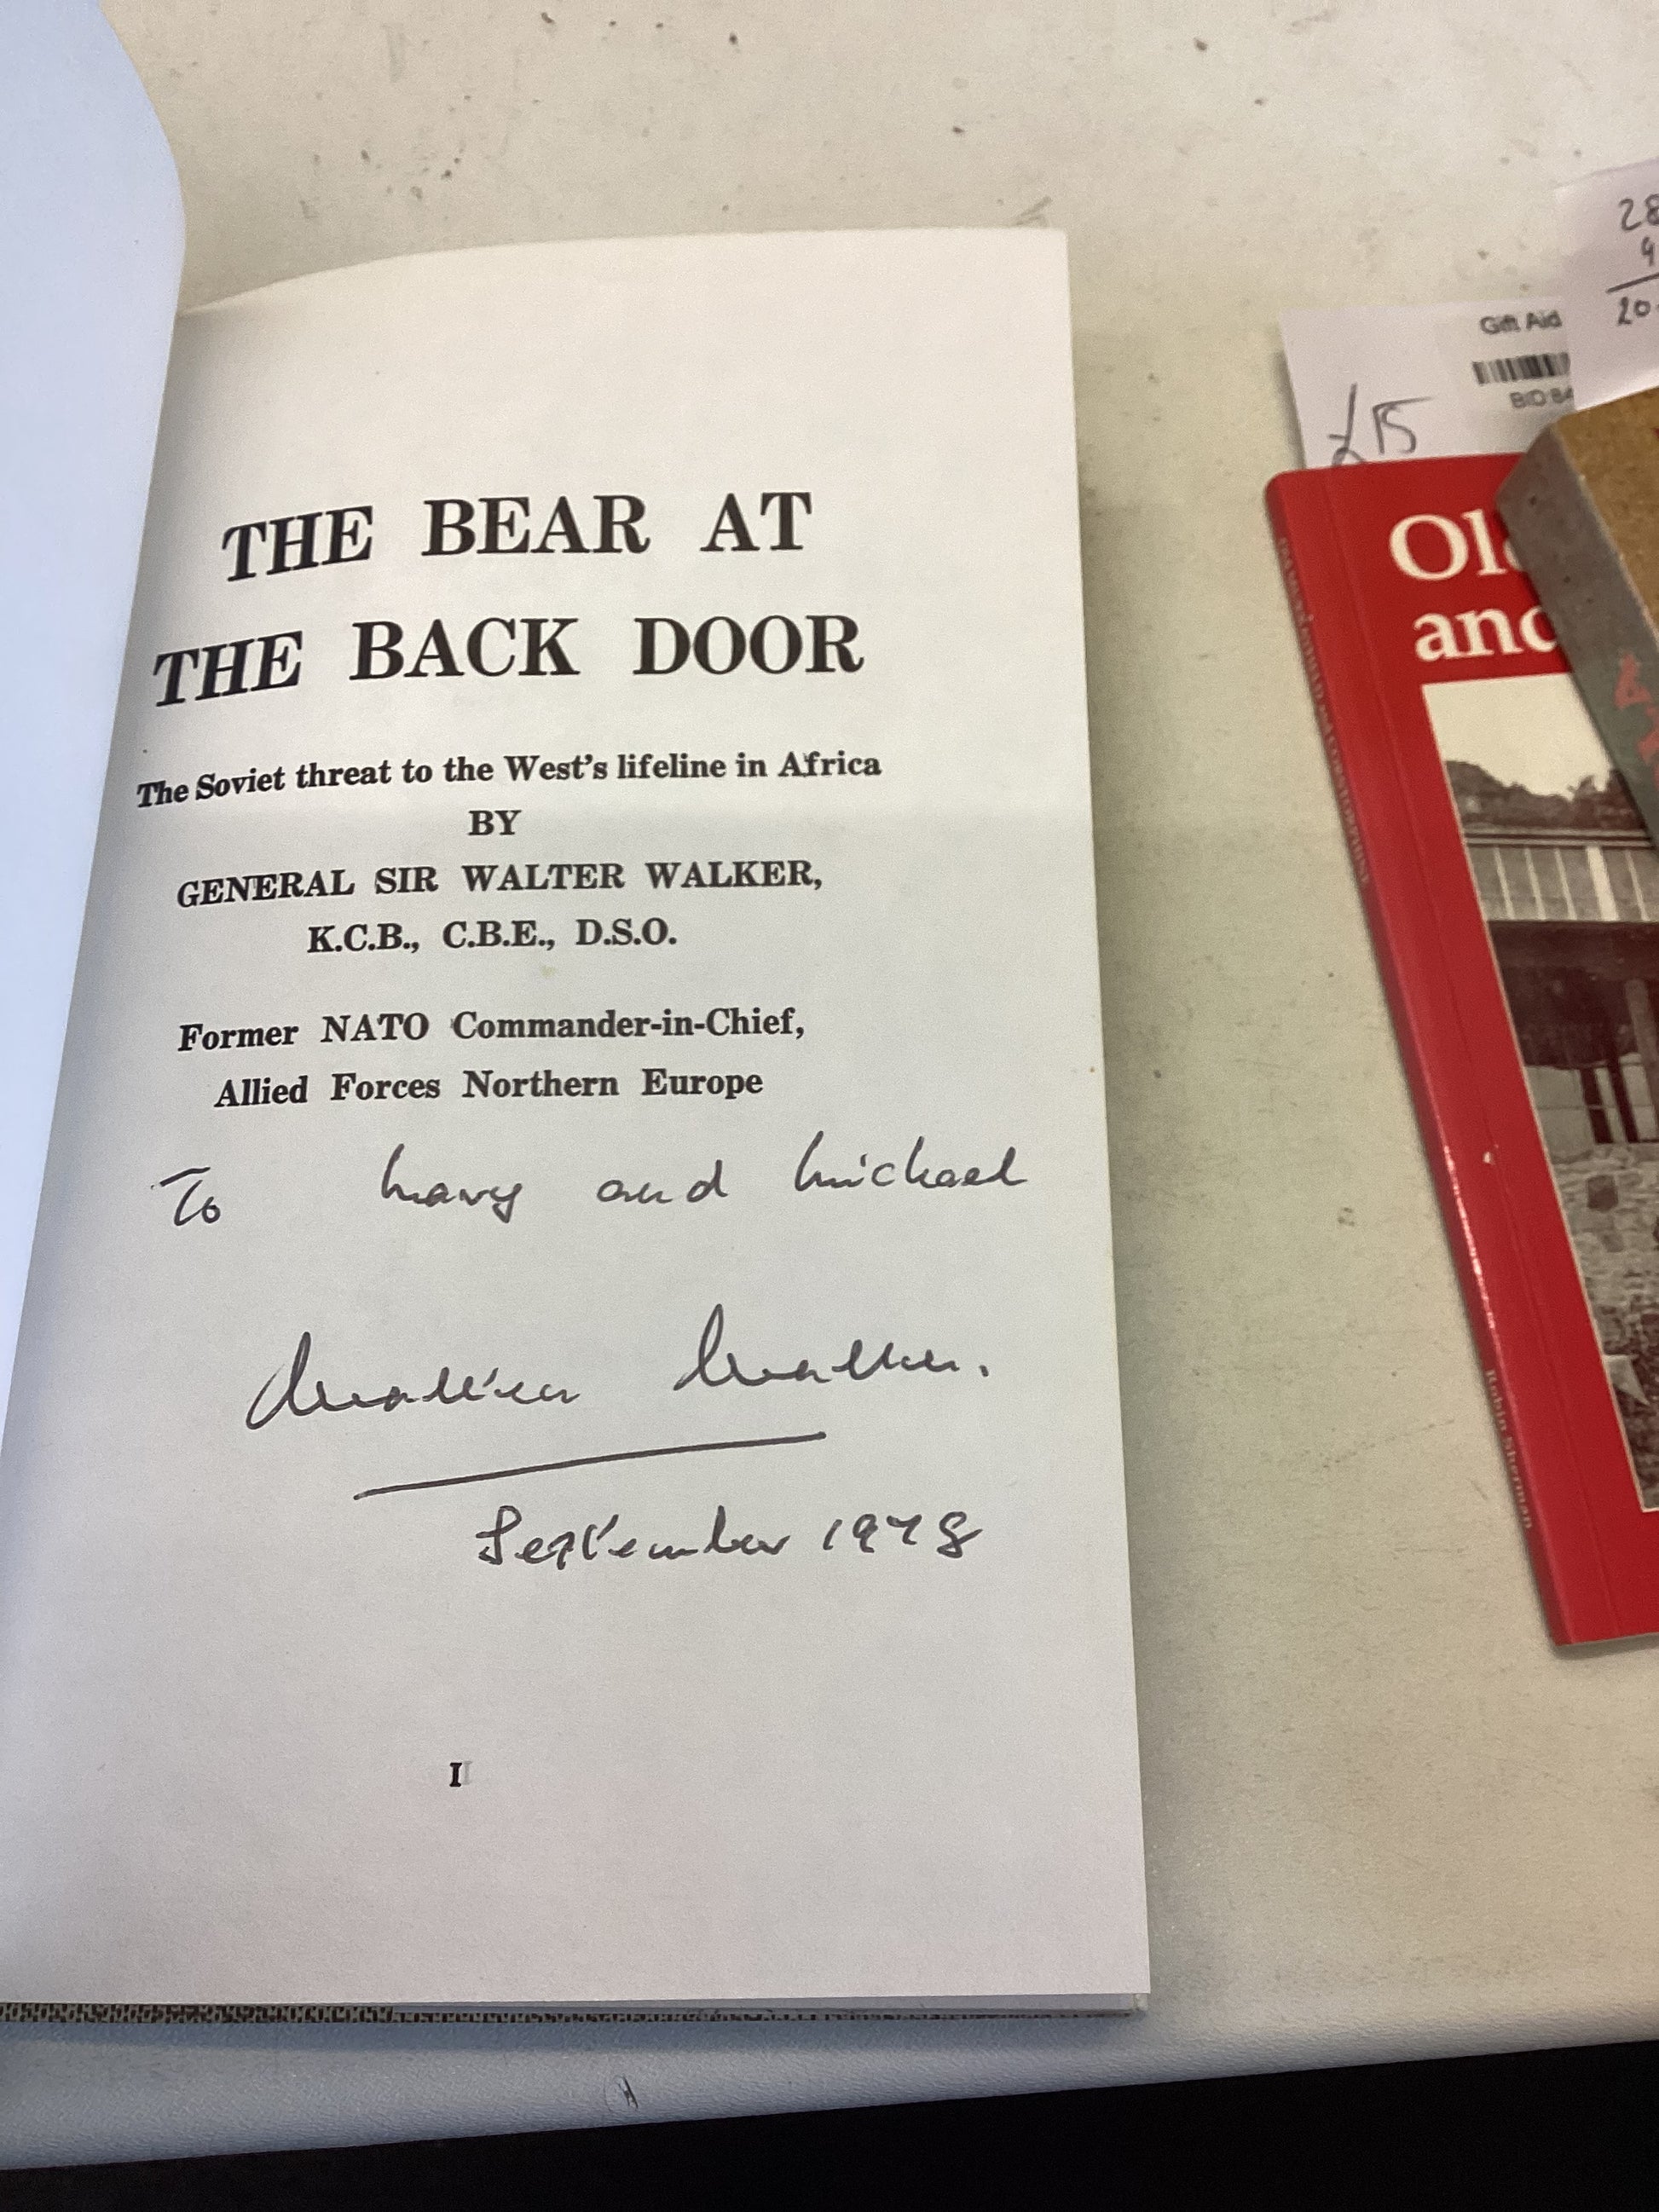 THE BEAR AT
THE BACK DOOR
The Soviet threat to the West's lifeline in Africa
BY
GENERAL SIR WALTER WALKER,
K.C.B., C.B.E., D.S.O.
Former NATO Commander-in-Chief,
Allied Forces Northern Europe
To Mary and Michael
Walter Walker.
September 1978
I
Gift Aid
£15
and
Robin Skerman